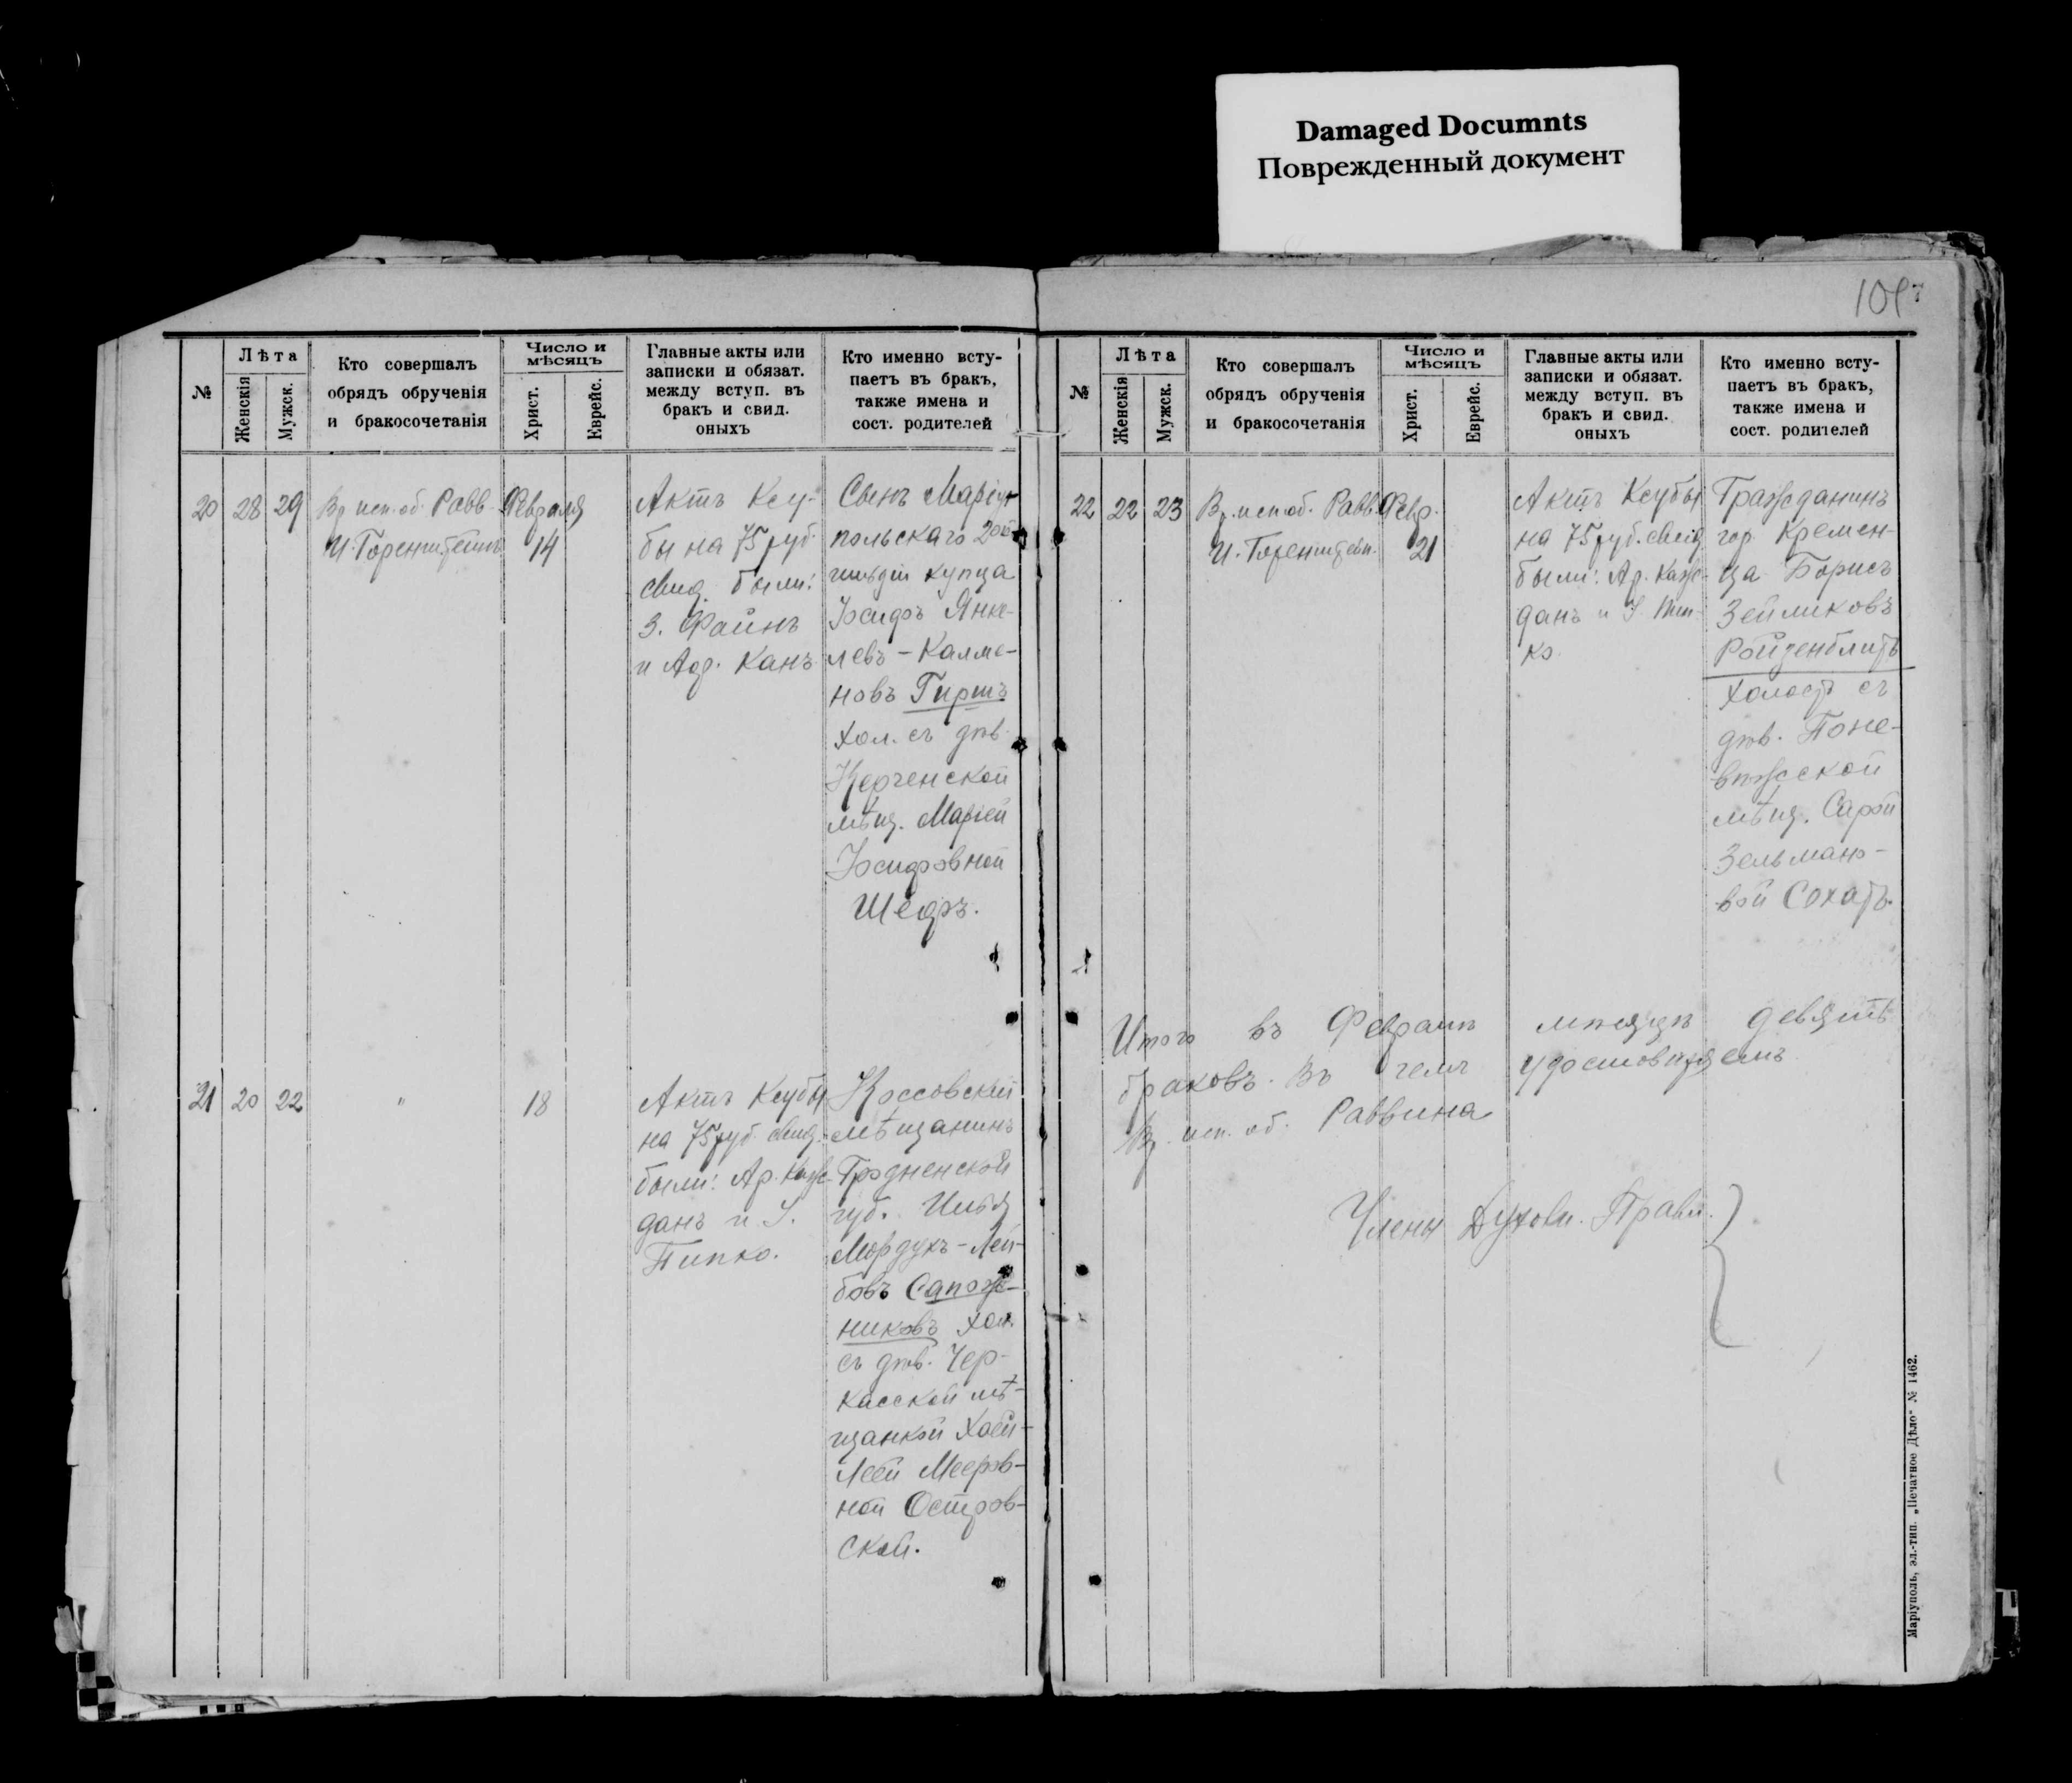 Damaged Documnts
Поврежденный документ
№
Лѣта
Женскія
Мужск.
Кто совершалъ
обрядъ обрученія
и бракосочетанія
Число и
мѣсяцъ
Христ.
Еврейс.
Главные акты или
записки и обязат.
между вступ. въ
бракъ и свид.
оныхъ
Кто именно всту-
паетъ въ бракъ,
также имена и
сост. родителей
20 28 29
Вр. исп. об. Равв.
И. Горенштейнъ
Февраля
14
Актъ Ксу-
бы на 75 руб.
Свид. были:
З. Файнъ
и Аор. Канъ
Сынъ Маріу-
польскаго 2ой
гильдіи купца
Іосифъ Янке-
левъ-Калма-
новъ Гиршъ
хол. съ дѣв.
Керченской
мѣщ. Маріей
Іосифовной
Шефъ.
21 20 22
"
18
Актъ Ксубы
на 75 руб. Свид.
были: Ар. Каж-
данъ и І.
Пипко.
Коссовскій
мѣщанинъ
Гродненской
губ. Илья
Мордухъ-Лей-
бовъ Сапож-
никовъ хол.
съ дѣв. Чер-
касской мѣ-
щанкой Хаей-
Леей Мееров-
ной Остров-
ской.
№
Лѣта
Женскія
Мужск.
Кто совершалъ
обрядъ обрученія
и бракосочетанія
Число и
мѣсяцъ
Христ.
Еврейс.
Главные акты или
записки и обязат.
между вступ. въ
бракъ и свид.
оныхъ
Кто именно всту-
паетъ въ бракъ,
также имена и
сост. родителей
22 22 23
Вр. исп. об. Равв.
И. Горенштейн.
Февр.
21
Актъ Ксубы
на 75 руб. Свид
были: Ар. Каж-
данъ и І. Пип-
ко
Гражданинъ
гор. Кремен-
ца Борисъ
Зейликовъ
Ройзенблитъ
холост съ
дѣв. Поне-
вѣжской
мѣщ. Сарой
Зельмано-
вой Сохатъ.
Итого въ Февралѣ мѣсяцѣ девять
браковъ. Въ чемъ удостовѣряемъ
Вр. исп. об. Раввина
Члены Духовн. Правл.
Маріуполь, эл.-тип. „Печатное Дѣло" № 1462.